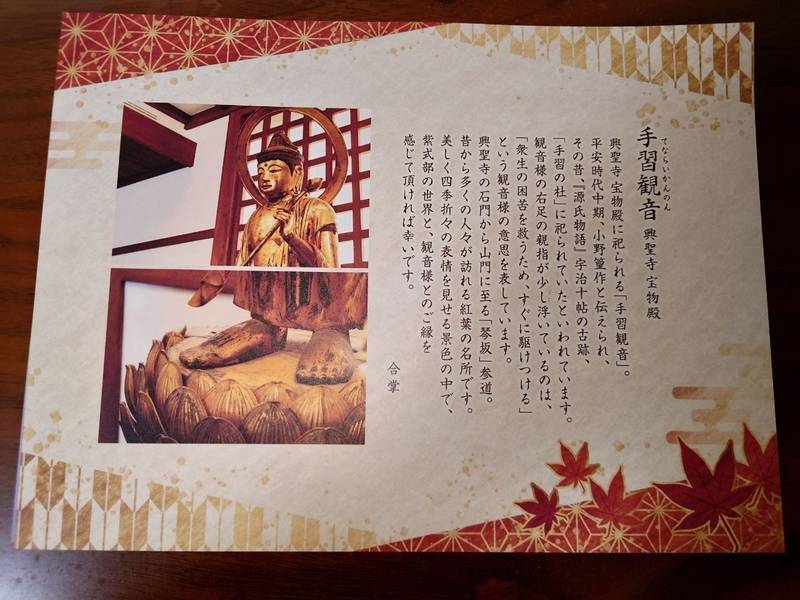 てならいかんのん
手習観音 興聖寺 宝物殿
興聖寺 宝物殿に祀られる「手習観音」。
平安時代中期 小野篁作と伝えられ、
その昔、『源氏物語』宇治十帖の古跡、
「手習の杜」に祀られていたといわれています。
観音様の右足の親指が少し浮いているのは、
「衆生の困苦を救うため、すぐに駆けつける」
という観音様の意思を表しています。
興聖寺の石門から山門に至る「琴坂」参道。
昔から多くの人々が訪れる紅葉の名所です。
美しく四季折々の表情を見せる景色の中で、
紫式部の世界と、観音様とのご縁を
感じて頂ければ幸いです。
合掌